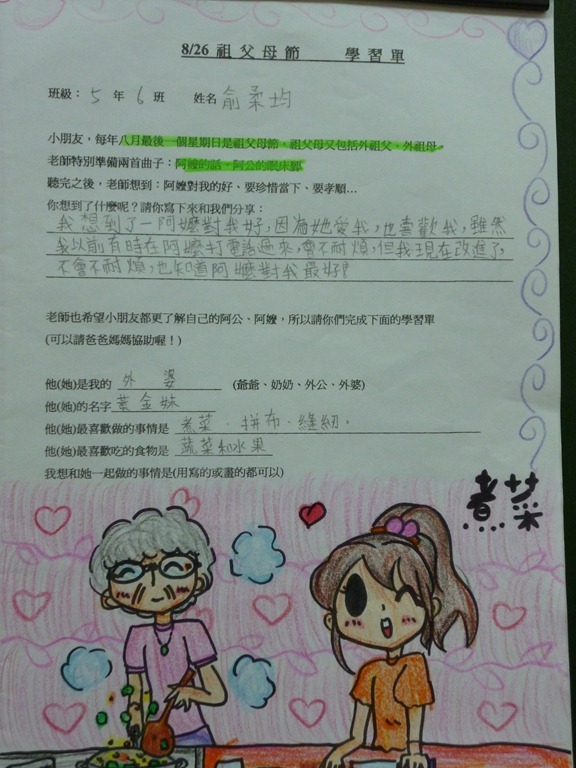 8/26 祖父母節 學習單
班級：5 年 6 班 姓名 俞柔均
小朋友，每年八月最後一個星期日是祖父母節，祖父母又包括外祖父、外祖母，
老師特別準備兩首曲子：阿嬤的話、阿公的眠床腳
聽完之後，老師想到：阿嬤對我的好、要珍惜當下、要孝順…
你想到了什麼呢？請你寫下來和我們分享：
我想到了－阿嬤對我好，因為她愛我，也喜歡我，雖然
我以前有時在阿嬤打電話過來，會不耐煩，但我現在改進了，
不會不耐煩，也知道阿嬤對我最好！
老師也希望小朋友都更了解自己的阿公、阿嬤，所以請你們完成下面的學習單
(可以請爸爸媽媽協助喔！)
他(她)是我的 外婆 (爺爺、奶奶、外公、外婆)
他(她)的名字 黃金妹
他(她)最喜歡做的事情是 煮菜、拼布、縫紉。
他(她)最喜歡吃的食物是 蔬菜和水果
我想和她一起做的事情是(用寫的或畫的都可以)
煮菜